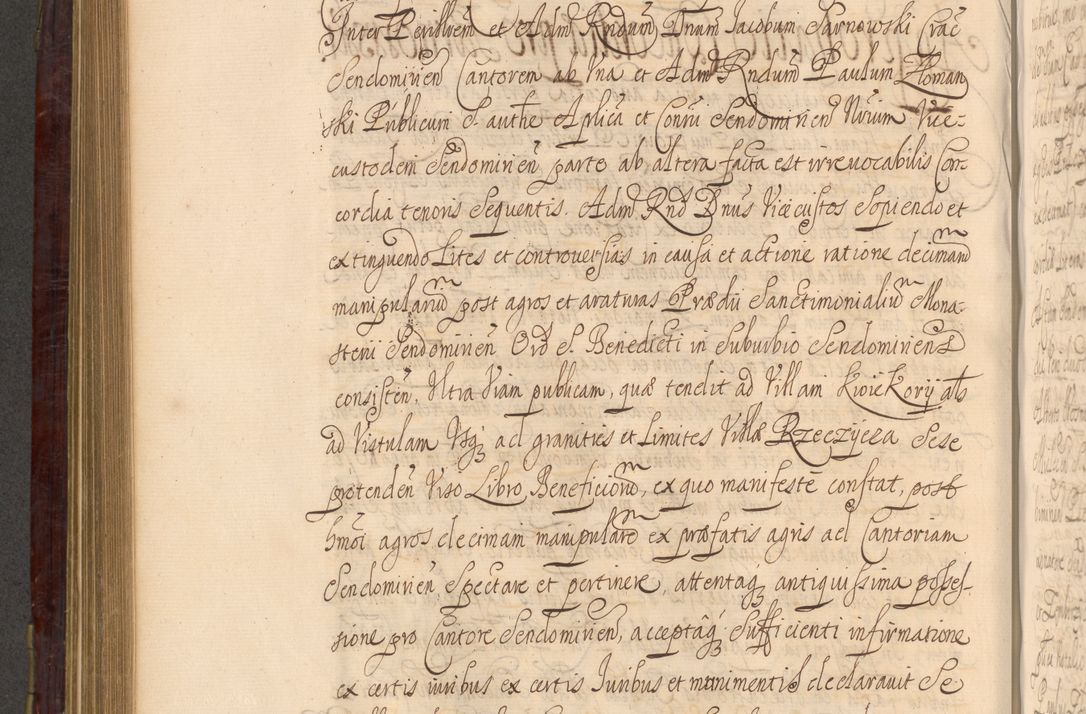 Inter Perillrem et Adm Rndum Dnum Jacobum Sarnowski Crac
Sendomirien Cantorem ab Una et Adm Rndum Paulum Zloman
ski Publicum S. authe Aplica et Conru Sendomirien Nrium Vice-
custodem Sendomirien parte ab altera facta est irrevocabilis Con
cordia tenoris Sequentis. Adm Rnd Dnus Vicecustos Sopiendo et
extinguendo Lites et controversias in causa et actione ratione decimar
manipularium post agros et araturas Prædii Sanctimonialium Mona-
sterii Sendomirien Ord S. Benedicti in Suburbio Sendomiriens
consisten, Ultra Viam publicam, quæ tendit ad Villam Kwiekorÿ als
ad Vistulam Usq ad granities et Limites Villæ Rzeczÿcza Sese
protenden Viso Libro Beneficiorum, ex quo manifeste constat, post
hmoi agros decimam manipularem ex præfatis agris ad Cantoriam
Sendomirien Spectare et pertinere, attentaq antiquissima posses-
sione pro Cantore Sendomirien, acceptaq Sufficienti infirmatione
ex certis iuribus ex certis Juribus et munimentis declaravit Se